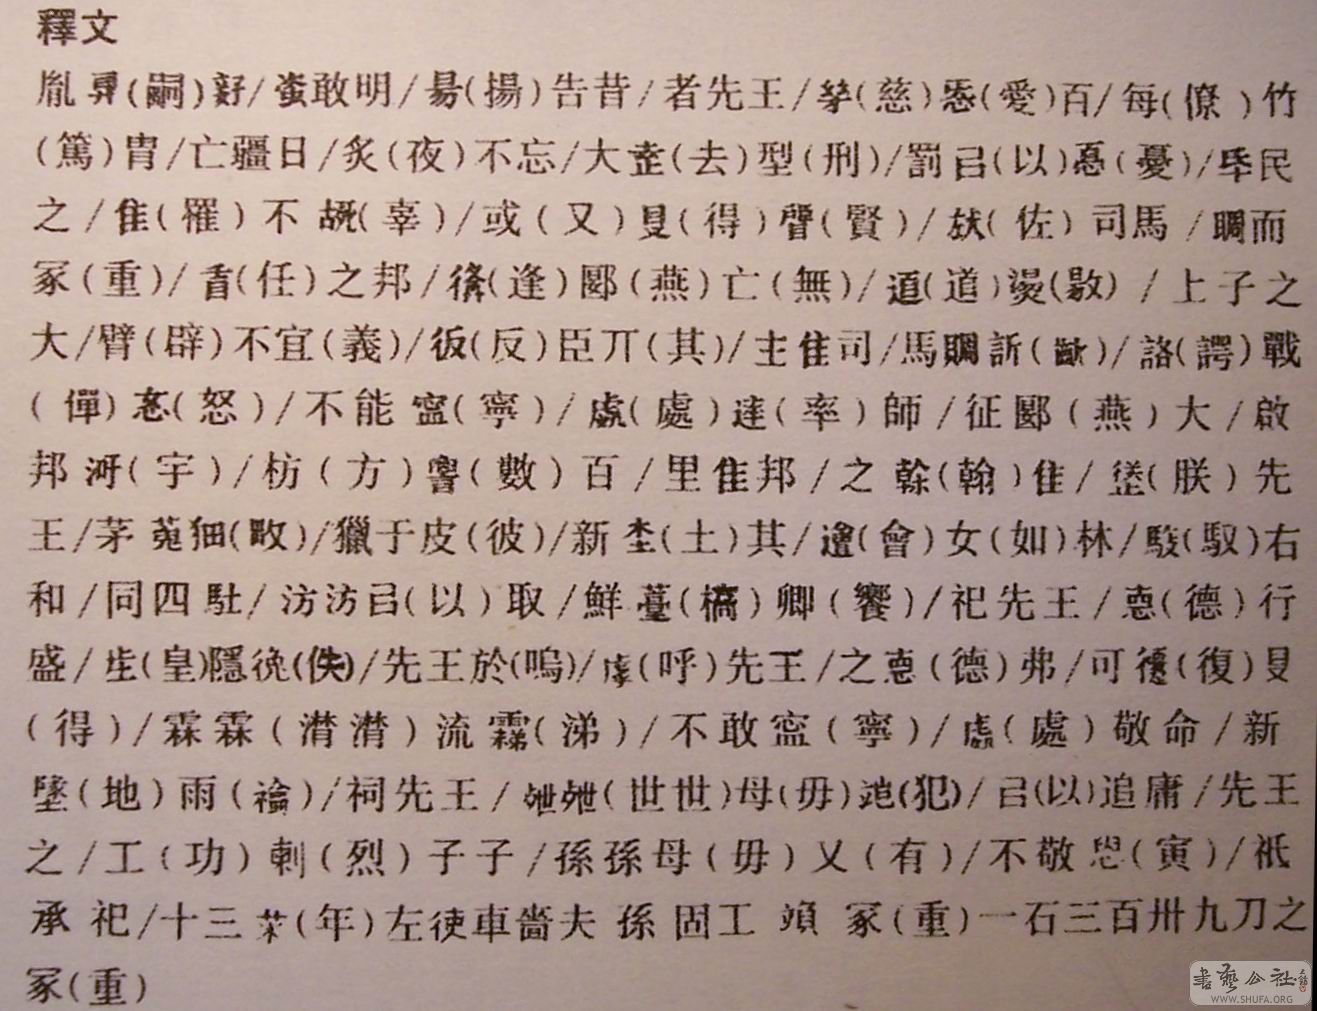 釋文
胤(嗣)/敢明/昜(揚)告昔/者先王/(慈)㤅(愛)百/每(僚)竹
(篤)胄/亡疆日/炙(夜)不忘/大(去)型(刑)/罰㠯(以)惪(憂)/氒民
之/隹(罹)不(辜)/或(又)㝵(得)(賢)/(佐)司馬/賙而
冢(重)/(任)之邦/(逢)郾(燕)亡(無)/(道)/上子之
大/臂(辟)不宜(義)/彶(反)臣丌(其)/主隹司/馬賙訢/詻(諤)戰
(僤)(怒)/不能寍(寧)/(處)達(率)師/征郾(燕)大/啟
邦㳔(宇)/枋(方)(數)百/里隹邦/之(翰)隹/(朕)先
王/茅蒐畋/獵于皮(彼)/新(土)其/(會)女(如)林/(馭)右
和/同四駐/汸汸㠯(以)取/鮮(槁)卿(饗)/祀先王/悳(德)行
盛/(皇)隱(佚)/先王於(嗚)/虖(呼)先王/之悳(德)弗/可復(復)㝵
(得)/霖霖(潸潸)流(涕)/不敢寍(寧)/(處)敬命/新
墬(地)雨(禴)/祠先王/(世世)母(毋)(犯)/㠯(以)追庸/先王
之/工(功)剌(烈)子子/孫孫母(毋)又(有)/不敬(寅)/祗
承祀/十三(年)左使車嗇夫孫固工冢(重)一石三百卅九刀之
冢(重)
書藝公社
WWW.SHUFA.ORG